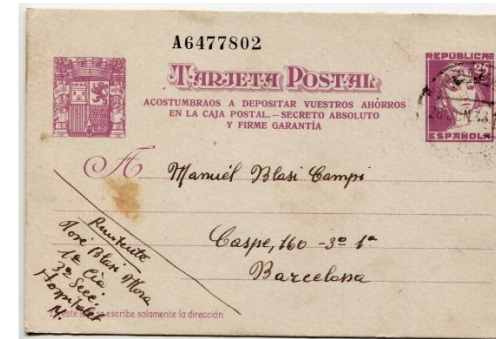 A6477802
TARJETA POSTAL
ACOSTUMBRAOS A DEPOSITAR VUESTROS AHORROS
EN LA CAJA POSTAL.—SECRETO ABSOLUTO
Y FIRME GARANTÍA
REPÚBLICA
25
ESPAÑOLA
A Manuel Blasi Campi
Caspe, 160 - 3º 1ª
Barcelona
Remitente
José Blasi Mora
1ª Cía.
3ª Secc.
Hospitalet
se escribe solamente la dirección